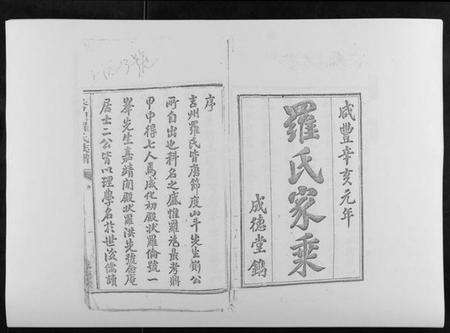 咸豐辛亥元年
羅氏家乘
成德堂鐫
序
吉州羅氏皆唐節度山斗先生諱公
所自出也科名之盛惟羅為最考將
甲申得七人焉成化初殿狀羅倫號一
峯先生嘉靖間殿狀羅洪先號念庵
居士二公皆以理學名於世後儒讀